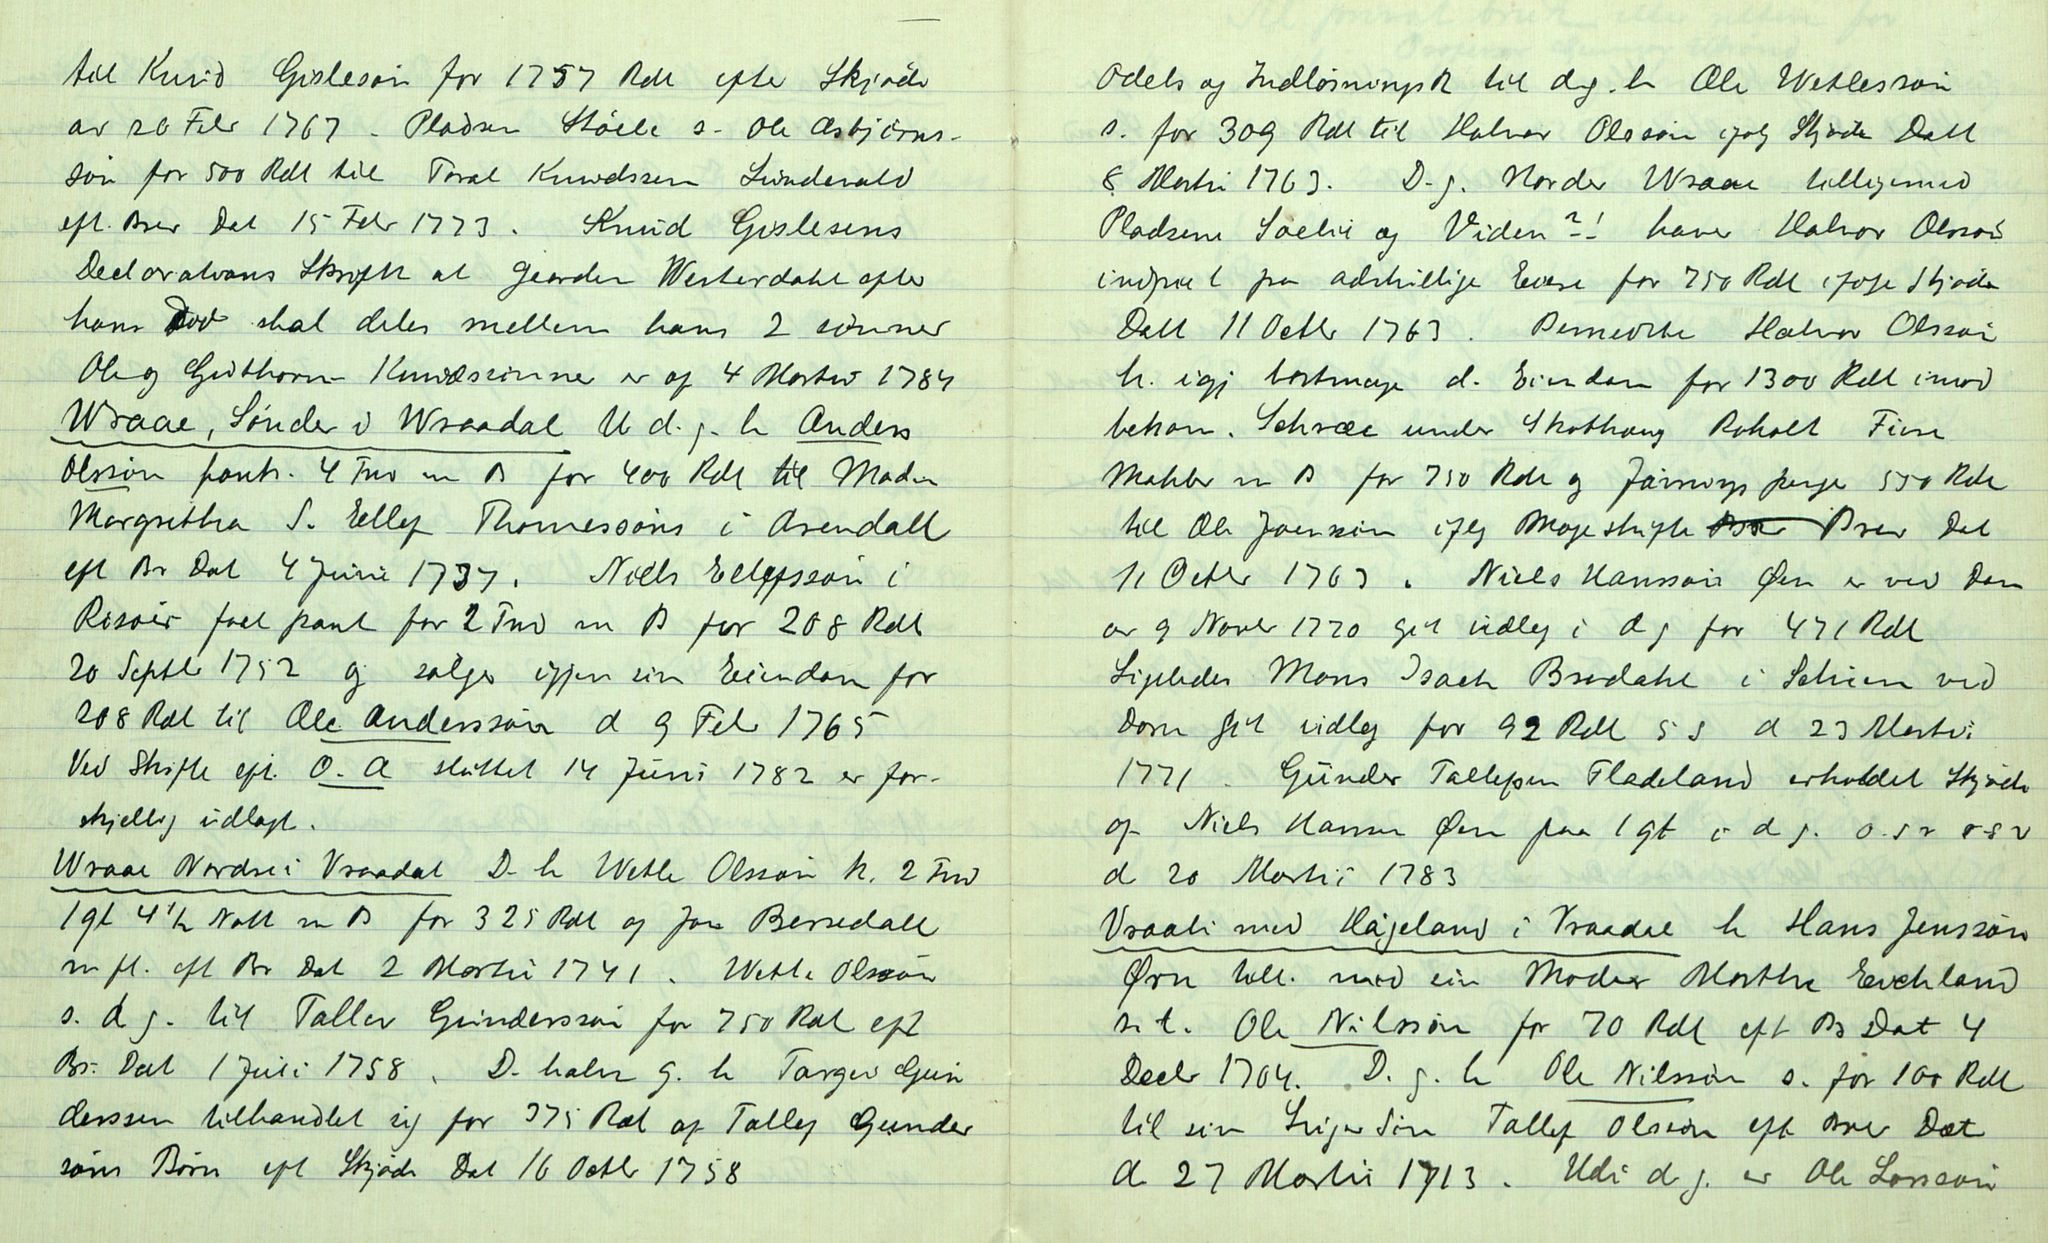 til Knud Gislesøn for 1757 Rdl efter Skjøde
av 20 Febr 1767 - Pladsen Støele s. Ole Asbjørns-
søn for 500 Rdl til Toral Knudssen Sundevald
eft. Brev Dat 15 Febr 1773. Knud Gislesens
Declarations Skrift at gaarden Westerdahl efter
hans Død skal deles mellem hans 2 sønner
Ole og Guthorm Knudssønner er af 4 Martii 1784
Wraae, Sønder i Wraadal U d. g. h Anders
Olssøn pants. 4 Tnd m B for 400 Rdl til Madm
Margretha S. Ellef Thomessøns i Arendall
eft Br Dat 4 Junii 1737. Niels Ellefssøn i
Risøer faet pant for 2 Tnd m B for 208 Rdl
20 Septbr 1752 og sælger igjen sin Eiendom for
208 Rdl til Ole Anderssøn d 9 Febr 1765
Ved Skifte eft. O. A sluttet 14 Juni 1782 er for-
skjellig udlagt.
Wraae Nordre i Vraadal D. h Wetle Olssøn k. 2 Tnd
1 gt 4 1/2 Natt m B for 325 Rdl og Jon Bersedall
m fl. eft Br Dat 2 Martii 1741. Wetle Olssøn
s. d g. til Tallev Gunderssøn for 750 Rdl eft
Br. Dat 1 Juli 1758. D. halve g. h Targer Gun
derssen tilhandlet sig for 375 Rdl af Tallef Gunder
søns Børn eft Skjøde Dat 16 Octbr 1758
Odels og Indløsningsr til d g. h Ole Wetlessøn
s. for 309 Rdl til Halvor Olssøn ifølg Skjøde Datt
8 Martii 1763. D. g. Norder Wraae tilligemed
Pladsene Soelie og Viden?! haver Halvor Olssøn
indfriet fra adskillige Eiere for 750 Rdl ifølge Skjøde
Datt 11 Octbr 1763. Bemeldte Halvor Olssøn
h. igj bortmage d. Eiendom for 1300 Rdl imod
bekom. Schrœe under Skathoug Roholt Fiere
Mahler m B for 750 Rdl og penge 550 Rdl
til Ole Joenssøn iflg Mageskifte Brev Dat
11 Octbr 1763. Niels Hanssøn Øen er ved Dom
av 9 Novbr 1770 git udleg i d g for 471 Rdl
Ligeledes Mons Isach Bredahl i Schien ved
Dom git udleg for 92 Rdl 5 s d 23 Martii
1771. Gunder Tallefsen Fladeland erholdet Skjøde
af Niels Hansen Øen paa 1 gt i d g.
d 20 Martii 1783
Vraali med Hågeland i Vraadal h Hans Jenssøn
Ørn till. med sin Moder Marthe Eechland
s. t. Ole Nilssøn for 70 Rdl eft Br Dat 4
Decbr 1704. D. g. h Ole Nilssøn s. for 100 Rdl
til sin Søn Tallef Olssøn eft Brev Dat
d 27 Martii 1713. Udi d g. er Ole Larssøn